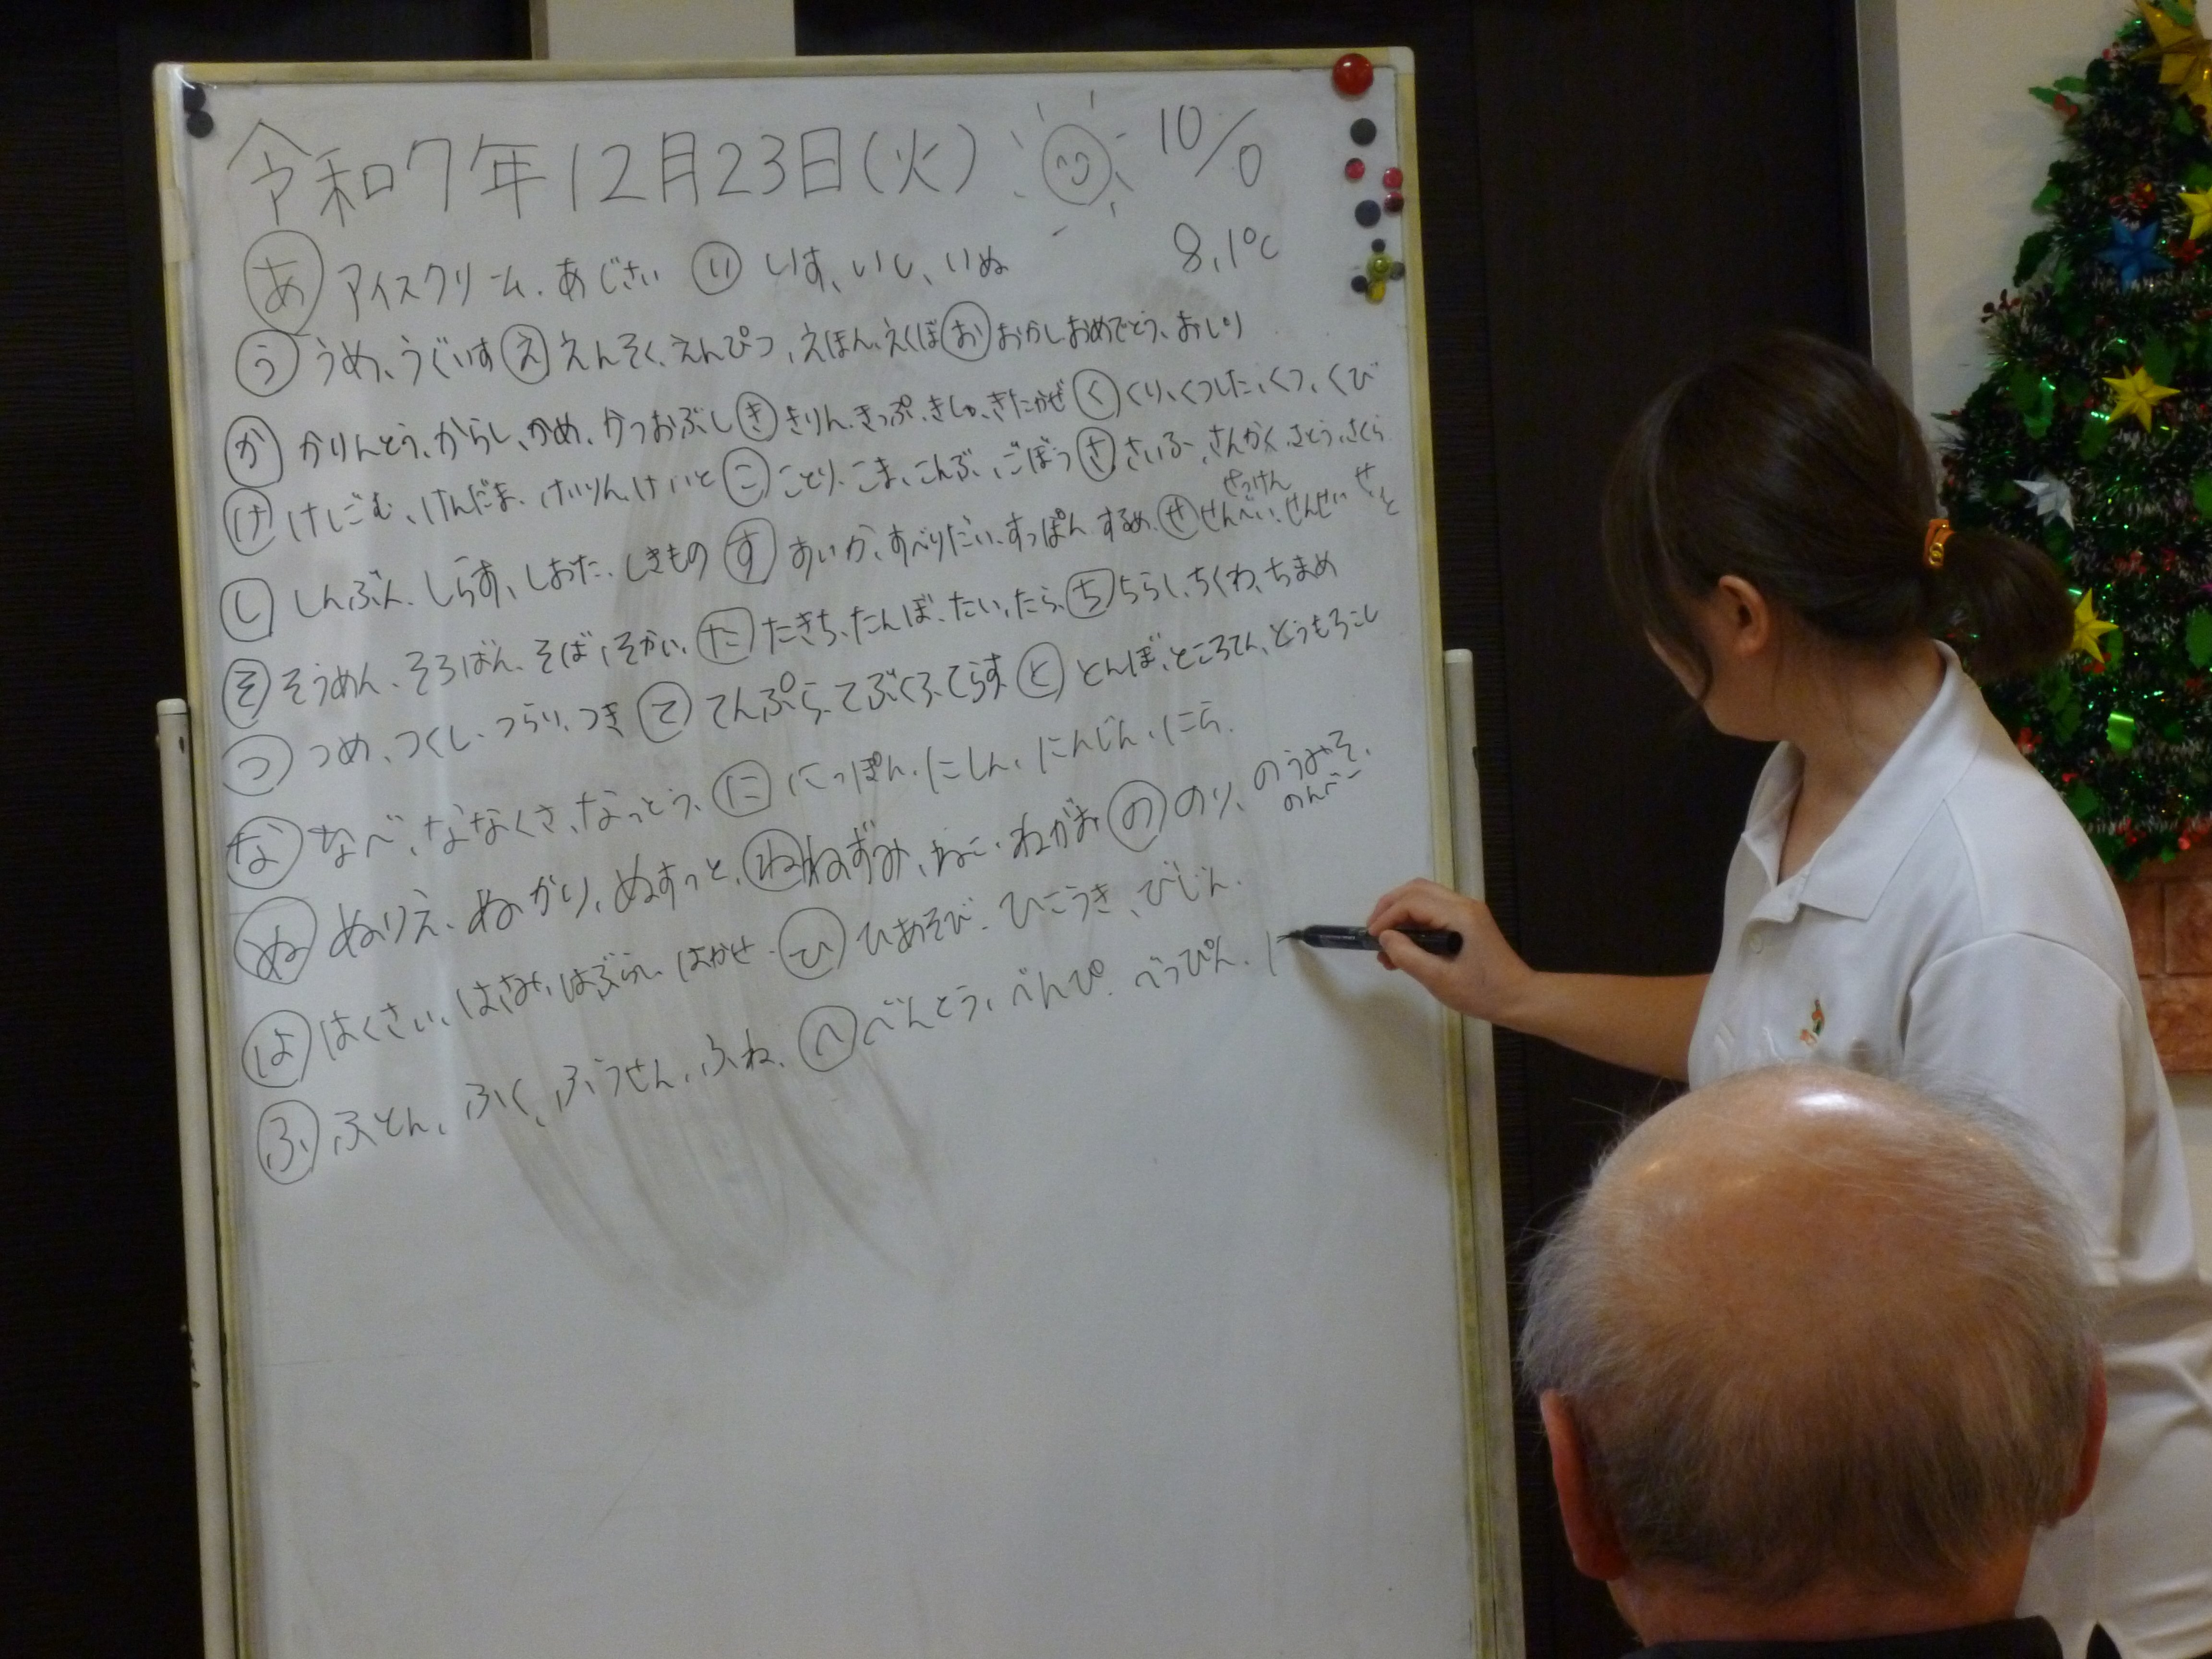 令和7年12月23日(火) 10/0
8.1℃
あ アイスクリーム、あじさい い いす、いし、いぬ
う うめ、うぐいす え えんそく、えんぴつ、えほん、えくぼ お おかし、おめでとう、おしり
か かりんとう、からし、かめ、かつおぶし き きりん、きっぷ、きしゃ、きたかぜ く くり、くつした、くつ、くび
け けしごむ、けんだま、けいりん、けいと こ ことり、こま、こんぶ、ごぼう さ さいふ、さんかく、さとう、さくら
し しんぶん、しらす、しおた、しきもの す すいか、すべりだい、すっぽん、するめ、せ せんべい、せんせい せいと
せっけん
そ そうめん、そろばん、そば、そかい、た たきち、たんぼ、たい、たら、ち ちらし、ちくわ、ちまめ
つ つめ、つくし、つらい、つき て てんぷら、てぶくろ、てらす と とんぼ、ところてん、とうもろこし
な なべ、ななくさ、なっとう、に にっぽん、にしん、にんじん、にら、
ぬ ぬりえ、ぬかり、ぬすっと、ね ねずみ、ねこ、ねがお の のり、のうみそ、
のんべー
は はくさい、はさみ、はぶらし、はかせ、ひ ひあそび、ひこうき、びじん、
ふ ふとん、ふく、ふうせん、ふね、へ べんとう、べんぴ、べっぴん、